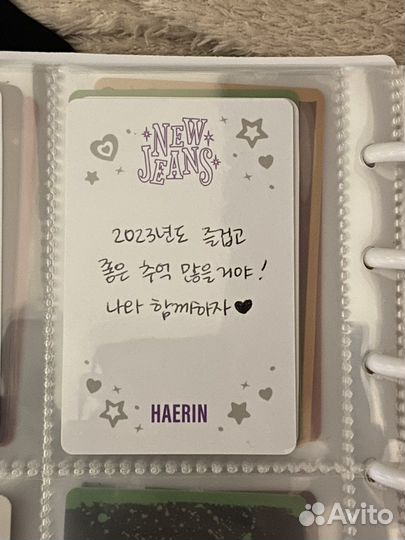 NEW
JEANS
2023년도 즐겁고
좋은 추억 많을거야!
나와 함께하자♥
HAERIN
Avito